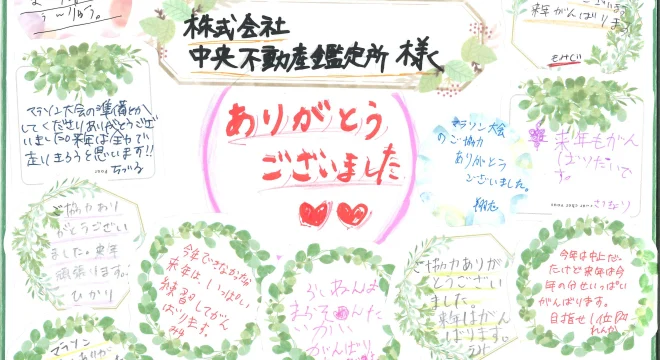 株式会社
中央不動産鑑定所 様
来年がんばります
もみじ
マラソン大会の準備とか
してくださりありがとうござ
いました。来年は全力で
走りきろうと思います!!
ちづる
ありがとう
ございました
マラソン大会
のご協力
ありがとう
ございました。
翔花
来年もがん
ばりたいで
す。
さおり
ご協力あり
がとうござい
ました。来年
頑張ります。
ひかり
今年できなかった分
来年は、いっぱい
練習してがん
ばります。
らいねんは
がんばり
ご協力ありが
とうござい
ました。
来年はがん
ばります。
今年は中止だっ
たけど来年は今
年の分せいいっぱい
がんばります。
目指せ1位
れんか
マラソン
ありが